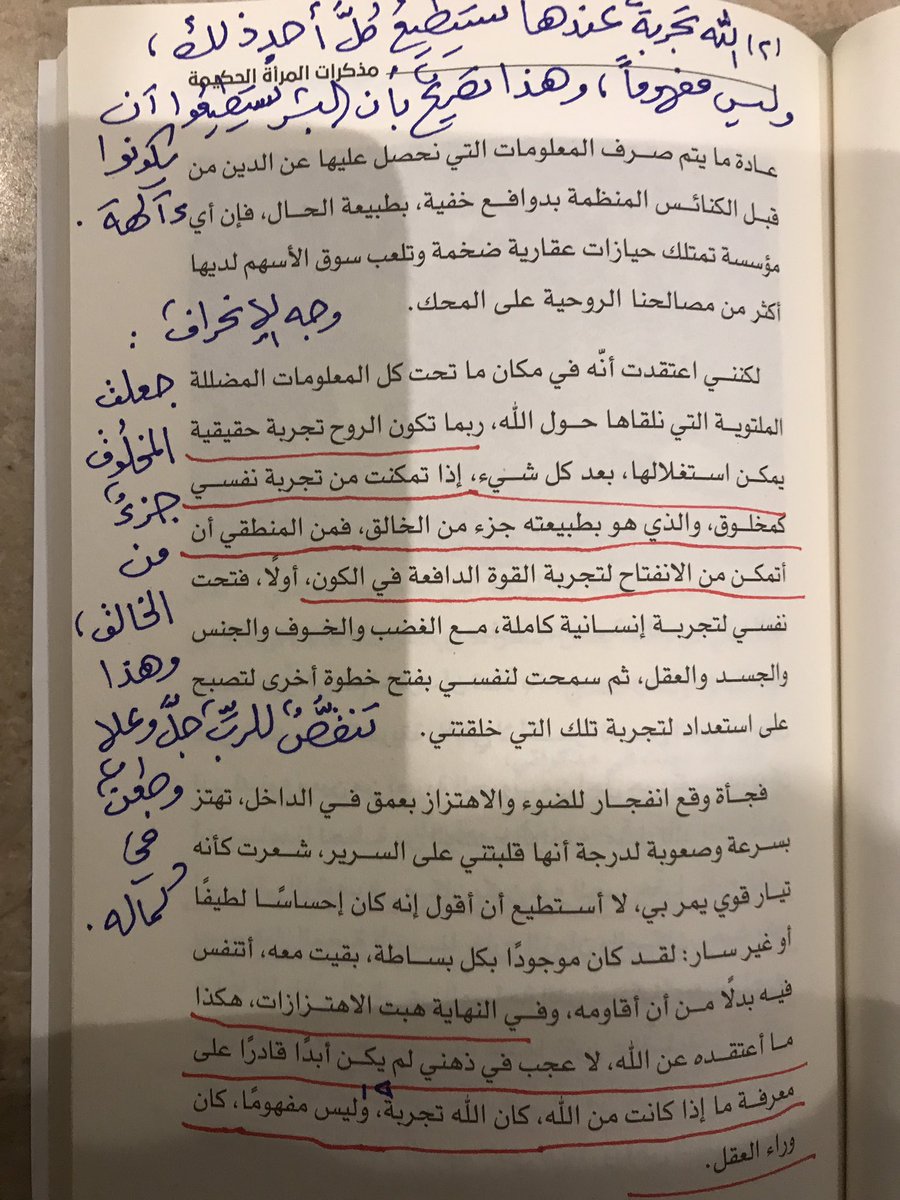 (٢) الله تجربة عندها تستطيع كل أحد ذلك،
مذكرات المرأة الحكيمة
وليس مفهوماً، وهذا تصريح بأن البشر يستطيعوا أن
يكونوا
ءآلهة.
عادة ما يتم صرف المعلومات التي نحصل عليها عن الدين من
قبل الكنائس المنظمة بدوافع خفية، بطبيعة الحال، فإن أي
مؤسسة تمتلك حيازات عقارية ضخمة وتلعب سوق الأسهم لديها
أكثر من مصالحنا الروحية على المحك.
وجه الإنحراف:
جعلت
المخلوق
جزءً
من
الخالق،
وهذا
تنقُّصٌ للربِّ جلَّ وعلا
وطعنٌ
في
كماله.
لكنني اعتقدت أنّه في مكان ما تحت كل المعلومات المضللة
الملتوية التي نلقاها حول الله، ربما تكون الروح تجربة حقيقية
يمكن استغلالها، بعد كل شيء، إذا تمكنت من تجربة نفسي
كمخلوق، والذي هو بطبيعته جزء من الخالق، فمن المنطقي أن
أتمكن من الانفتاح لتجربة القوة الدافعة في الكون، أولًا، فتحت
نفسي لتجربة إنسانية كاملة، مع الغضب والخوف والجنس
والجسد والعقل، ثم سمحت لنفسي بفتح خطوة أخرى لتصبح
على استعداد لتجربة تلك التي خلقتني.
فجأة وقع انفجار للضوء والاهتزاز بعمق في الداخل، تهتز
بسرعة وصعوبة لدرجة أنها قلبتني على السرير، شعرت كأنه
تيار قوي يمر بي، لا أستطيع أن أقول إنه كان إحساسًا لطيفًا
أو غير سار: لقد كان موجودًا بكل بساطة، بقيت معه، أتنفس
فيه بدلًا من أن أقاومه، وفي النهاية هبت الاهتزازات، هكذا
ما أعتقده عن الله، لا عجب في ذهني لم يكن أبدًا قادرًا على
معرفة ما إذا كانت من الله، كان الله تجربة، وليس مفهومًا، كان
وراء العقل.